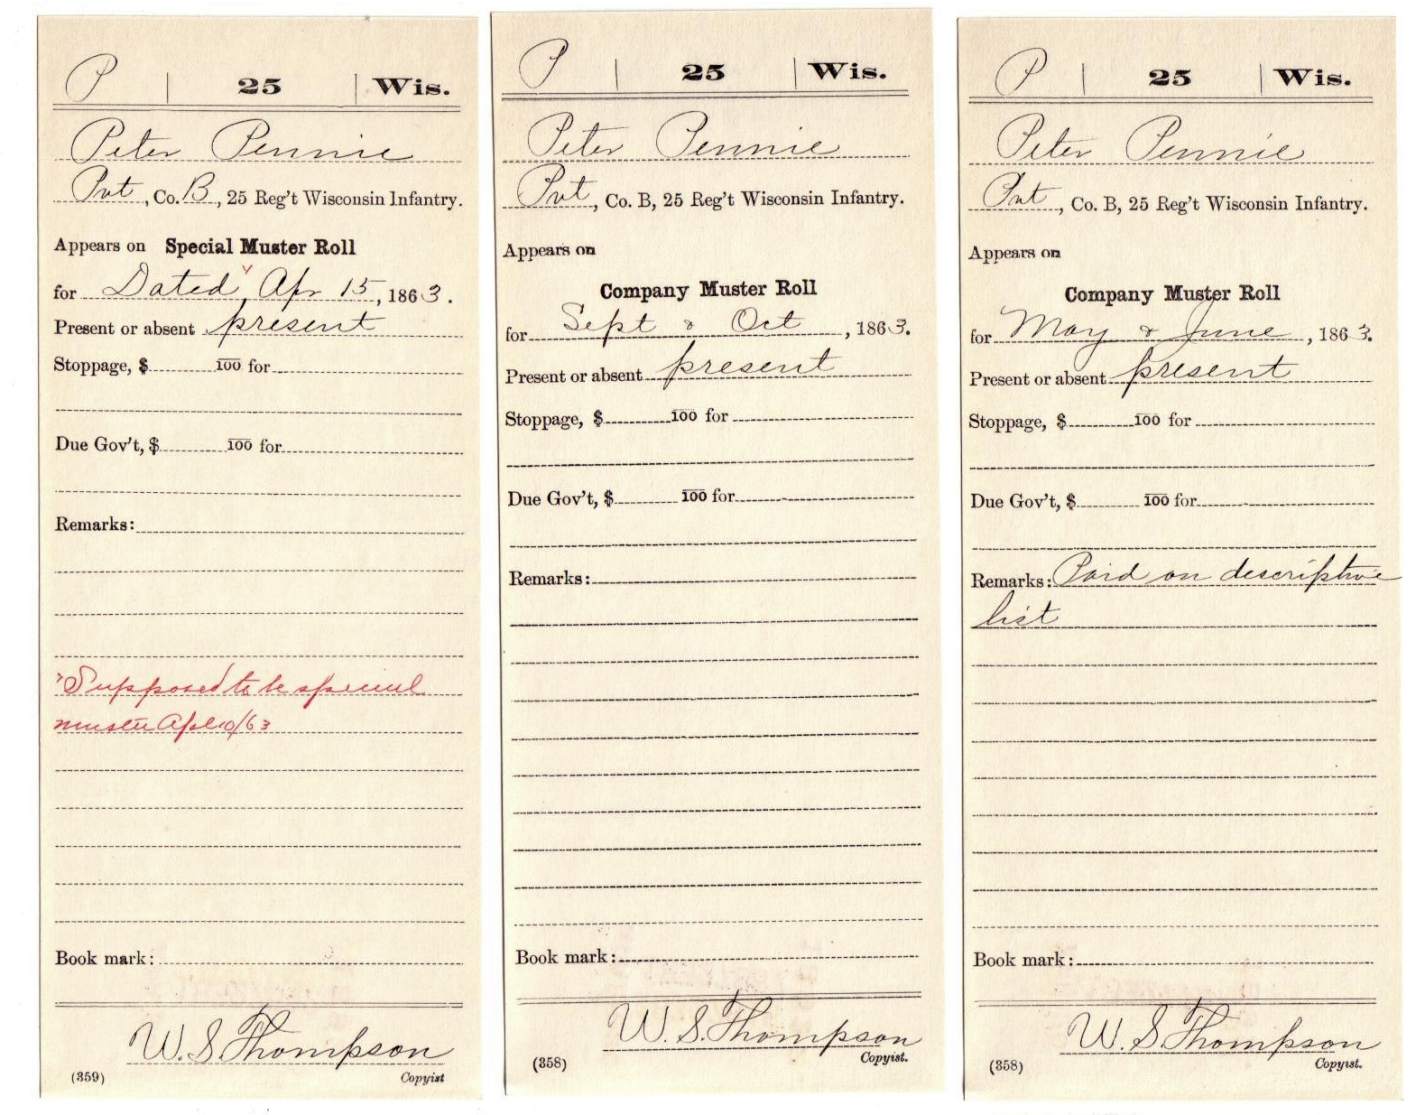 P | 25 | Wis.
Peter Pennie
Pvt, Co. B, 25 Reg't Wisconsin Infantry.
Appears on Special Muster Roll
for Dated Apr 15, 1863.
Present or absent present
Stoppage, $ 100 for
Due Gov't, $ 100 for
Remarks:
Supposed to be special
muster Apl 10/63
Book mark:
W. S. Thompson
(359) Copyist
P | 25 | Wis.
Peter Pennie
Pvt, Co. B, 25 Reg't Wisconsin Infantry.
Appears on
Company Muster Roll
for Sept & Oct, 1863.
Present or absent present
Stoppage, $ 100 for
Due Gov't, $ 100 for
Remarks:
Book mark:
W. S. Thompson
(358) Copyist.
P | 25 | Wis.
Peter Pennie
Pvt, Co. B, 25 Reg't Wisconsin Infantry.
Appears on
Company Muster Roll
for May & June, 1863.
Present or absent present
Stoppage, $ 100 for
Due Gov't, $ 100 for
Remarks: Paid on descriptive
list
Book mark:
W. S. Thompson
(358) Copyist.